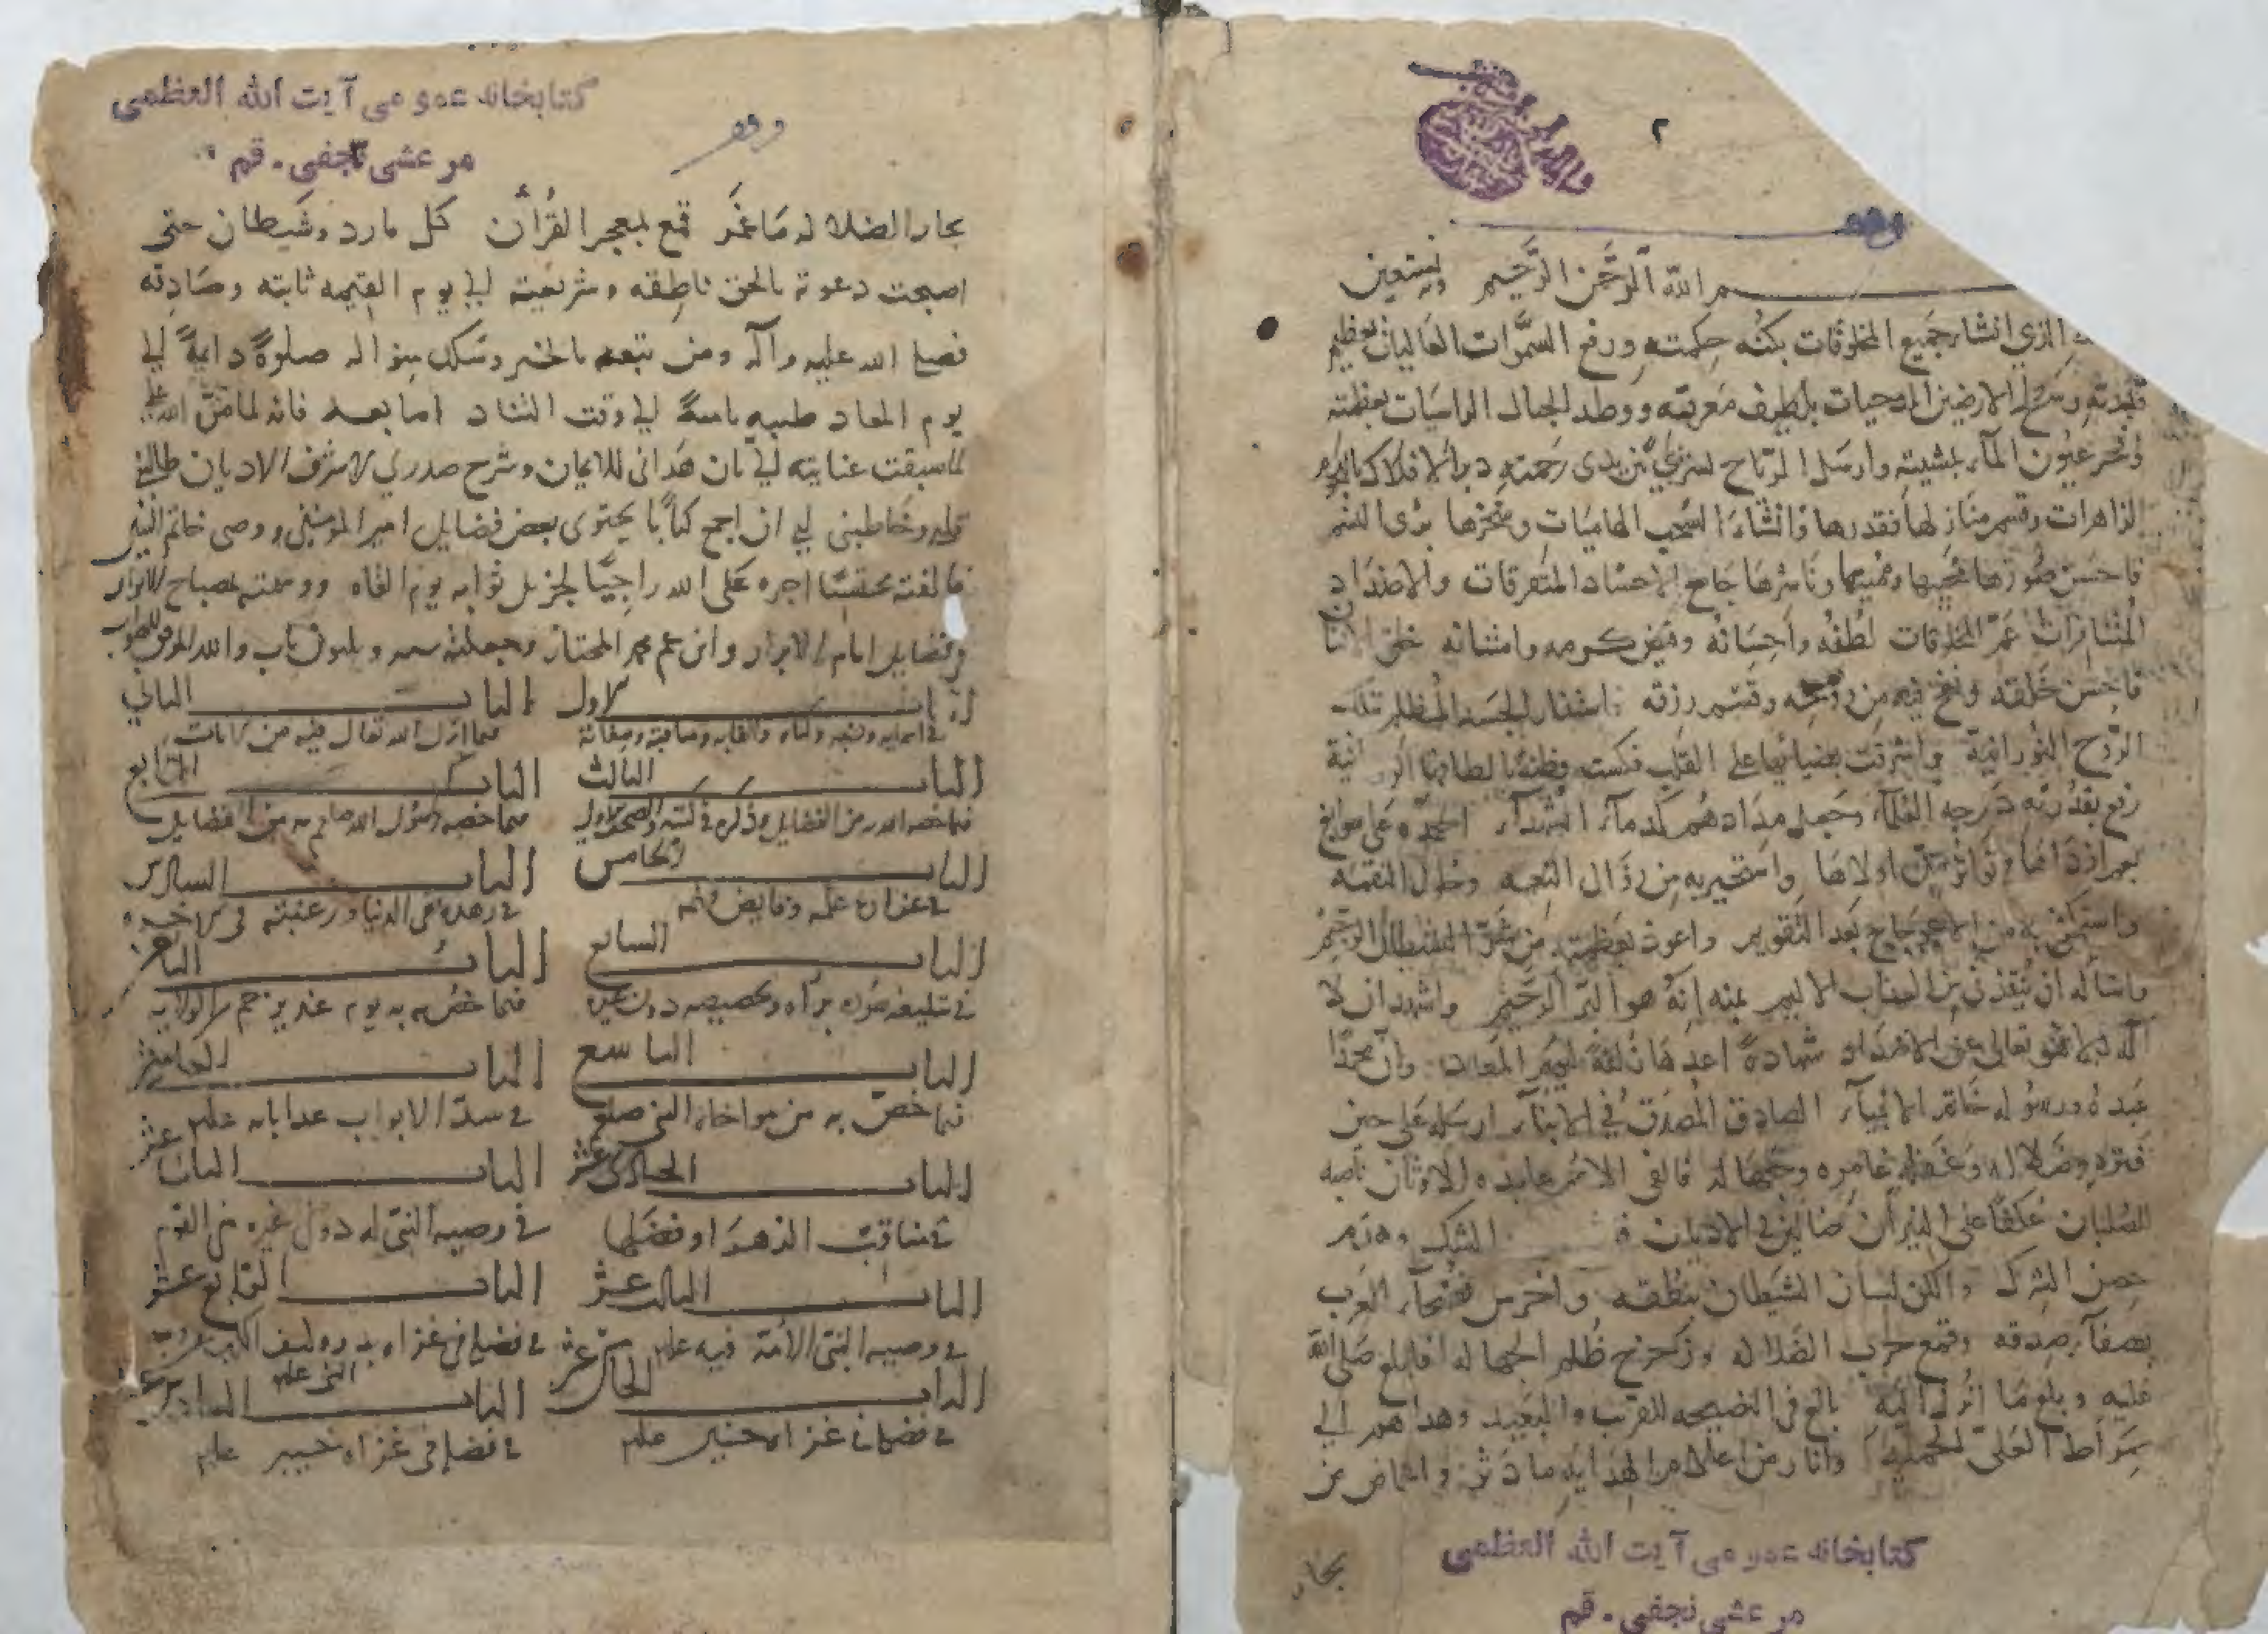 ٢
وقف
بسم الله الرَّحمن الرَّحيم وبه نستعين
الذي انشا جَميع المخلوقات بكنُه حِكمته ورفع السمَّوات العَاليات بعظيم
قُدرته وسَطح الارضين المدحيات بلطيف مَعرفته ووطد الجبال الراسيَات بعظمته
وفجر عيُون المآء بمشيته وارسَل الرياح بين يدى رَحمته دبر الافلاك
الزاهرات وقسم منَازلها فقدرها وانشاءَ السُحب الهاميَات وسخرها
فاحسَن صُورها مُحييها ومُميتها ونَاشرها جَامع الاجساد المتفرقات والاضدَاد
المُتنافرات عمّ المخلوقات لُطفُه واحِسَانُه وفيض كرمه وامتنانه خلق الانسان
فاحِسَن خَلقته ونفخ فيه مِن رُوحه وقسّم رزقه فاستنار الجسَد المُظلم بتلك
الرّوح النُورانية واشرقت بضيائها على القلب
رفع بقُدرته دَرجه العُلمآء وجعل مدَادهُم كدمآء الشهدآء احمدُه عَلى سوابغ
واستجير به مِن زوَال النعمه وحلول النقمه
واستكفى به من الاعوجَاج بَعد التقويم واعوذ بعظمته من شرّ الشيطان الرجيم
واسَاله ان يُنقذني مِن العذاب الاليم بمنه انّهُ هوَ البَرّ الرَّحيم واشهد ان لا
اله الا هُو تعالى عَن الاضدَاد شهادةً اعدهَا ليَوم المعاد وانّ محمدًا
عَبدهُ ورسُوله خَاتم الانبيآء الصادق المُصدّق في الانبآء ارسَله عَلى حين
فترهٍ وضلاله وغفلهٍ غامره وجهَاله فالفى الامم عابده للاوثان ناصبه
للصُلبان عُكفًا على النيرَان ضَالين في الاديان الشك وهَدم
حصن الشرك والكن لسان الشيَطان بنُطقه واخرس فُصَحآء العرب
بصفآء صِدقه وقمع حزب الضلاله وزَحزح ظُلم الجهاله فابلغ صَلى الله
عليه وبلغ مَا انُزل اليه بالغ في النصيحه للقريب والبَعيد وهداهم الى
صرَاط العَليّ الحميَد وانار من اعلام الهدَايه ما دثر واغاض من
بحار
كتابخانه عمومى آيت الله العظمى
مرعشى نجفى - قم
كتابخانه عمومى آيت الله العظمى
مرعشى نجفى - قم
وقف
بحار الضلاله مَا غمَر قمع بمعجز القُرآن كل مارد وشَيطان حتى
اصبحت دعوته بالحق ناطقه وشريعته الى يوم القيمه ثابته وصَادقه
فصلى الله عليه وآله ومن تبعه بالخير وسَلك منواله صلوةً دايمةً الى
يوم المعاد طيبه الى وقت التناد اما بعد فانه لما منّ الله علي
لما سبقت عنايته لي بان هَدانى للايمان وشرح صدري لاشرف الاديان
وخاطبنى لي ان اجمع كتابًا يحتوى بعض فضايل امير المؤمنين ووصى خاتم النبيين
فالفته محتسبًا اجره عَلى الله راجيًا لجزيل ثوابه يوم القاه ووسمته بمصباح الانوار
فى فضايل امام الابرار وابن عم محمد المختار وجعلته باب والله الموفق للصواب
الباب الاول
الباب الثاني
فيما انزل الله تعالى فيه من الايات
الباب الثالث
الباب الرابع
الباب الخامس
في غزاره علمه
الباب السادس
في زهده فى الدنيا ورغبته فى الاخره
الباب السابع
في تبليغه سوره براه وتخصيصه دون غيره
الباب الثامن
فيما خصّ به يوم غدير خم من الولايه
الباب التاسع
فيما خصّ به من مواخاه النبى صلعم
الباب العاشر
في سدّ الابواب عدا بابه علم
الباب الحادى عشر
في مناقب الزهرَا وفضلها
الباب الثانى عشر
في وصيه النبىّ له دون غيره من القوم
الباب الثالث عشر
في وصيه النبىّ الامّة فيه علم
الباب الرابع عشر
في فضله فى غزاه بدر
الباب الخامس عشر
في فضله في غزاه حنين علم
الباب السادس عشر
في فضله فى غزاه خيبر علم